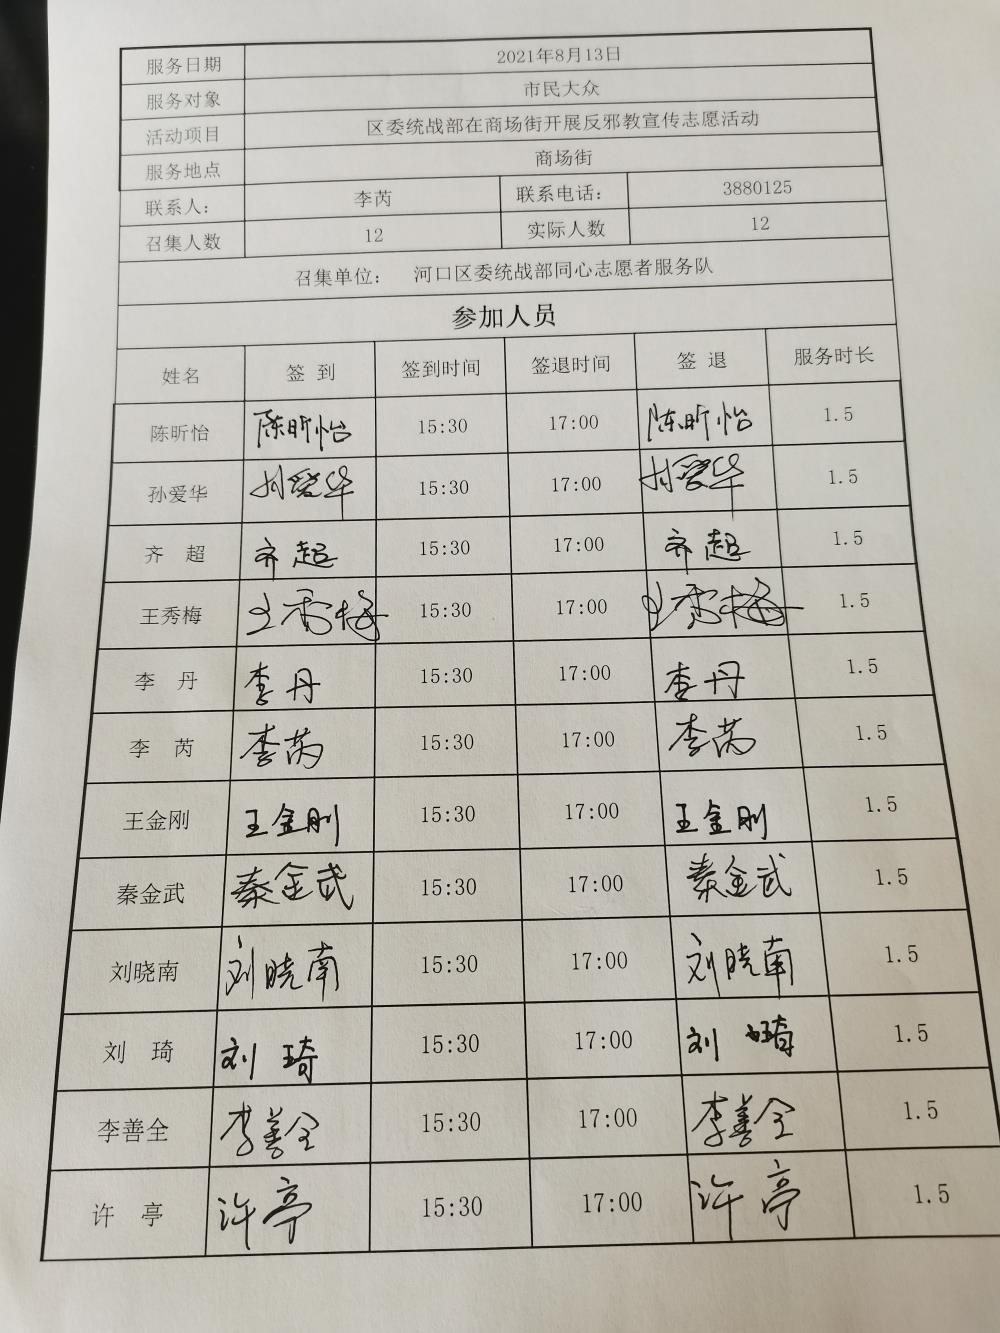 服务日期 2021年8月13日
服务对象 市民大众
活动项目 区委统战部在商场街开展反邪教宣传志愿活动
服务地点 商场街
联系人： 李芮 联系电话： 3880125
召集人数 12 实际人数 12
召集单位： 河口区委统战部同心志愿者服务队
参加人员
姓名 签 到 签到时间 签退时间 签 退 服务时长
陈昕怡 陈昕怡 15:30 17:00 陈昕怡 1.5
孙爱华 孙爱华 15:30 17:00 孙爱华 1.5
齐 超 齐超 15:30 17:00 齐超 1.5
王秀梅 王秀梅 15:30 17:00 王秀梅 1.5
李 丹 李丹 15:30 17:00 李丹 1.5
李 芮 李芮 15:30 17:00 李芮 1.5
王金刚 王金刚 15:30 17:00 王金刚 1.5
秦金武 秦金武 15:30 17:00 秦金武 1.5
刘晓南 刘晓南 15:30 17:00 刘晓南 1.5
刘 琦 刘琦 15:30 17:00 刘琦 1.5
李善全 李善全 15:30 17:00 李善全 1.5
许 亭 许亭 15:30 17:00 许亭 1.5